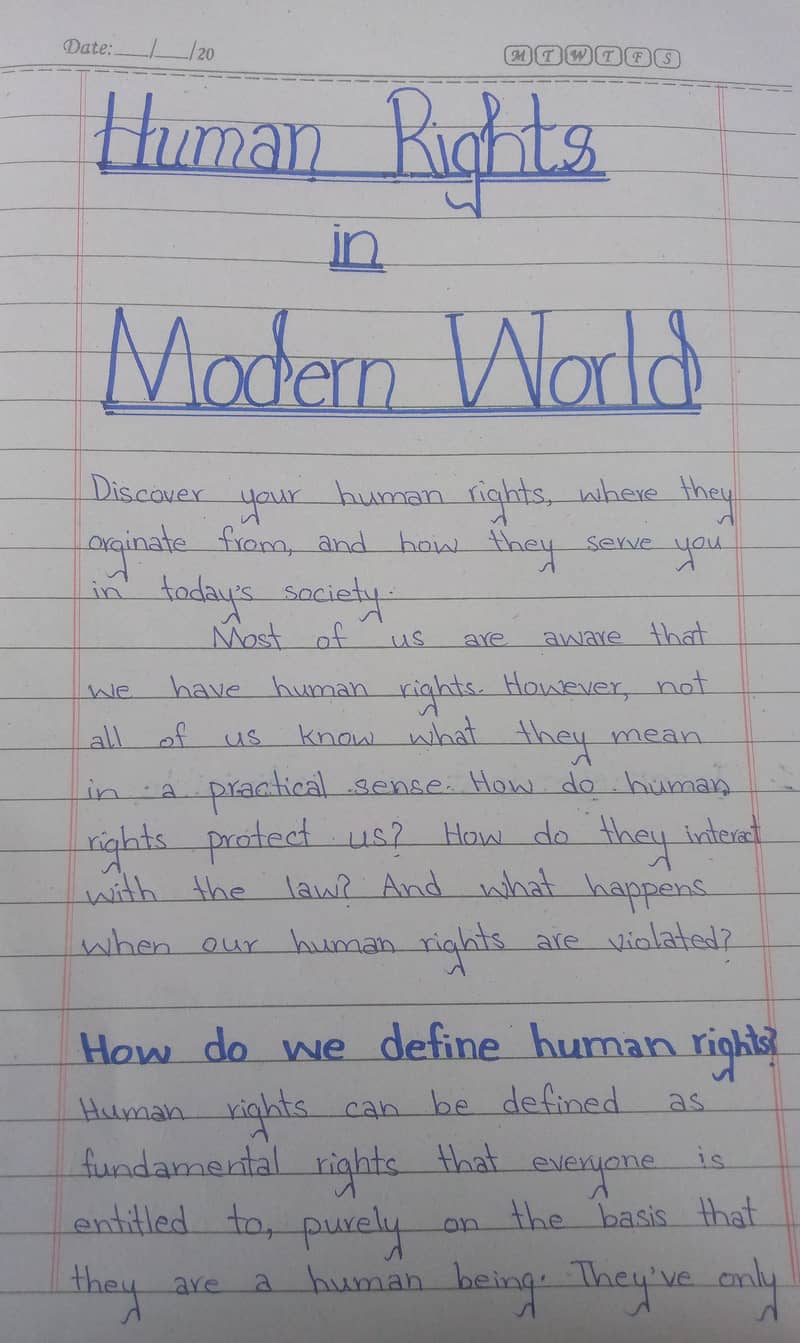 Date:___/___/20 M T W T F S
Human Rights
in
Modern World
Discover your human rights, where they
orginate from, and how they serve you
in today's society.
Most of us are aware that
we have human rights. However, not
all of us know what they mean
in a practical sense. How do human
rights protect us? How do they interact
with the law? And what happens
when our human rights are violated?
How do we define human rights?
Human rights can be defined as
fundamental rights that everyone is
entitled to, purely on the basis that
they are a human being. They've only